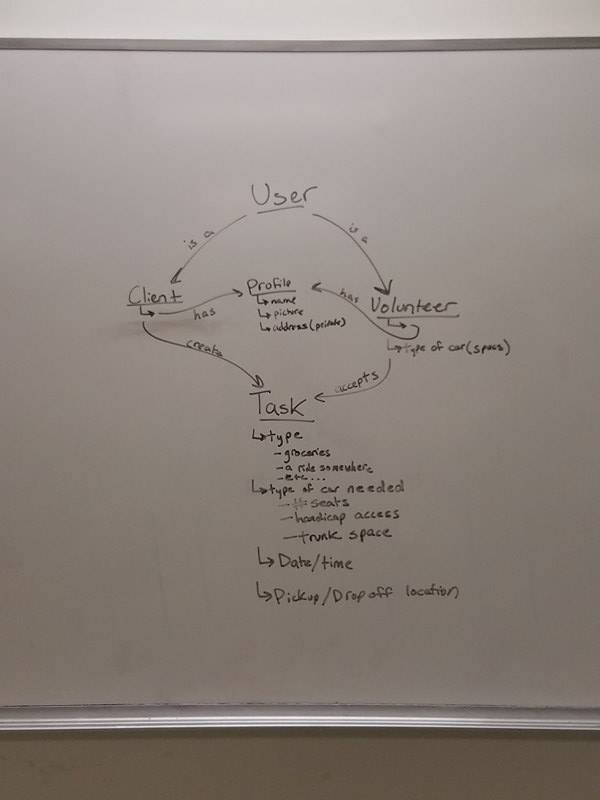 User
is a
is a
Client
has
Profile
name
picture
address (private)
has
Volunteer
type of car (specs)
creates
accepts
Task
type
- groceries
- a ride somewhere
- etc...
type of car needed
- # seats
- handicap access
- trunk space
Date/time
Pickup/Drop off location